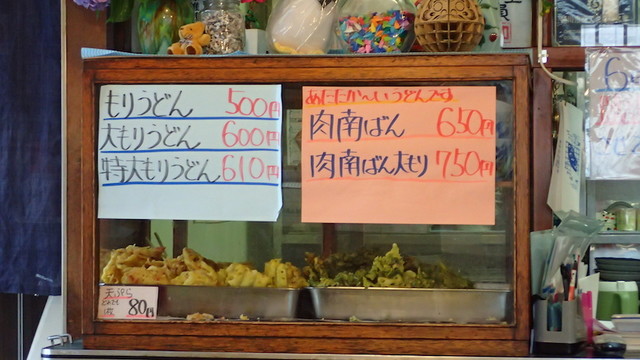 もりうどん 500円
大もりうどん 600円
特大もりうどん 610円
あたたか〜いうどんです
肉南ばん 650円
肉南ばん大もり 750円
天ぷら
どれでも
1枚 80円